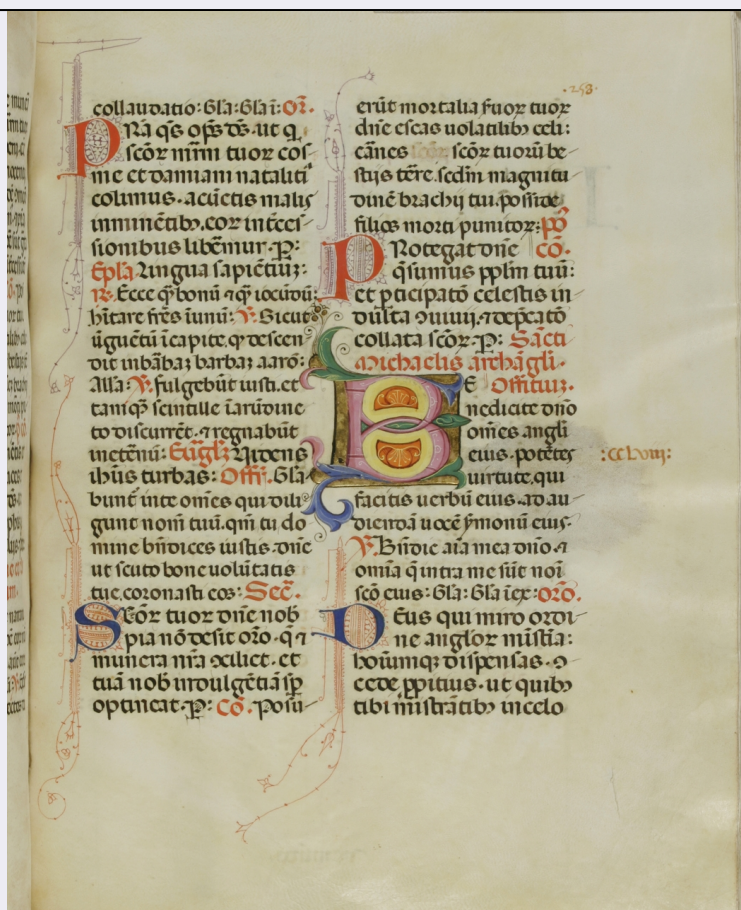 .253.
collaudatio: Gl̄a: Gl̄a ī: Or̄.
PRā qs op̄s d̄s. ut q
scōꝝ mīm tuoꝝ cos
me et damiani nataliti
colimus. a cūctis malis
inminētibꝫ. eoꝝ intcēs
sionibus libēmur. P̄:
Ep̄la Lingua sapiētiuꝫ:
R. Ecce qͣ bonū ⁊ qͣ iocūdū:
hītare frēs ī unū: V. Sicut
ūguētū ī capite, qͩ descen
dit in bābaꝫ barbaꝫ aarō:
Alla V. fulgebūt iusti. et
tanqꝫ scintille ī arūdine
to discurrēt. ⁊ regnabūt
in etēnū: Euāglꝫ Videns
ihūs turbas: Offr̄. Gl̄a
bunt̄ in te om̄es qui dili
gunt nom̄ tuū. qm̄ tu do
mine bn̄dices iustis. dn̄e
ut scuto bone uolūtatis
tue, coronasti eos: Sec̄.
SCōꝝ tuoꝝ dn̄e nob̄
pia nō desit or̄o. q̄ ⁊
munera nr̄a ɔciliet. et
tuā nob̄ indulgētiā sp̄
optineat. P̄: Cō. Posu
erūt mortalia suoꝝ tuoꝝ
dn̄e escas uolatilibꝫ celi:
cānes scōꝝ tuoꝝ be
stijs tēre. scd̄m magnitu
dinē brachij tui. posside
filios morti punitoꝝ: Pō
PRotegat dn̄e cō.
q̄sumus pplm̄ tuū:
et pticipatō celestis in
dulta ɔuiuii. ⁊ dep̄catō
collata scōꝝ. P̄: Sācti
Michaelis archāgli.
BE Offitiuꝫ.
nedicite dn̄o
om̄es angli
eius. potētes
uirtute. qui
facitis uerbū eius. ad au
diendā uocē s̄monū eius.
V. Bn̄dic aīa mea dn̄o. ⁊
omīa q̄ intra me sūt noī
scō eius: Gl̄a: Gl̄a ī ex: Or̄o.
DEus qui miro ordi
ne angloꝝ mīstia:
hoīumqꝫ dispensas. ɔ
cede ppitius. ut quibꝫ
tibi mīstrātibꝫ in celo
:cclviii: